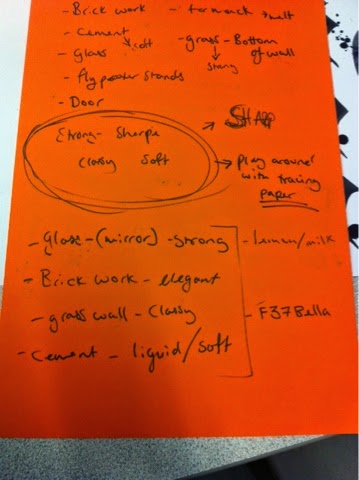 - Brick work - tarmack → melt
- Cement
↓ soft
- grass - Bottom of wall
↓
strong
- Glass
- fly poster stands
- Door
Strong - Sharpe
Classy Soft
→ SHARP
→ play around with tracing paper
- Glass - (mirror) - strong
- Brick work - elegant
- grass wall - Classy
- Cement - liquid/soft
- Lemon/milk
- F37Bella